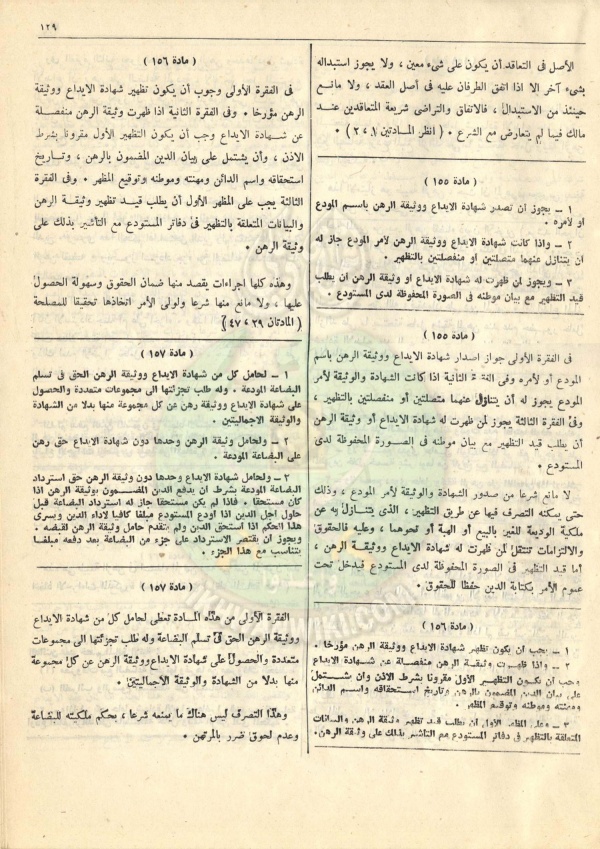 ١٢٩
الأصل فى التعاقد أن يكون على شىء معين ، ولا يجوز استبداله
بشىء آخر الا اذا اتفق الطرفان عليه فى أصل العقد ، ولا مانع
حينئذ من الاستبدال ، فالاتفاق والتراضى شريعة المتعاقدين عند
مالك فيما لم يتعارض مع الشرع ٠ ( انظر المادتين ١ ، ٢ ) ٠
( مادة ١٥٥ )
١ – يجوز ان تصدر شهادة الايداع ووثيقة الرهن باسم المودع
او لأمره ٠
٢ – واذا كانت شهادة الايداع ووثيقة الرهن لأمر المودع جاز له
ان يتنازل عنهما متصلتين او منفصلتين بالتظهير ٠
٣ – ويجوز لمن ظهرت له شهادة الايداع او وثيقة الرهن ان يطلب
قيد التظهير مع بيان موطنه فى الصورة المحفوظة لدى المستودع ٠
( مادة ١٥٥ )
فى الفقرة الأولى جواز اصدار شهادة الايداع ووثيقة الرهن باسم
المودع أو لأمره وفى الفقرة الثانية اذا كانت الشهادة والوثيقة لأمر
المودع يجوز له أن يتنازل عنهما متصلتين أو منفصلتين بالتظهير ،
وفى الفقرة الثالثة يجوز لمن ظهرت له شهادة الايداع أو وثيقة الرهن
أن يطلب قيد التظهير مع بيان موطنه فى الصورة المحفوظة لدى
المستودع ٠
لا مانع شرعا من صدور الشهادة والوثيقة لأمر المودع ، وذلك
حتى يمكنه التصرف فيها عن طريق التظهير ، الذى يتنازل به عن
ملكية الوديعة للغير بالبيع أو الهبة أو نحوهما ، وعليه فالحقوق
والالتزامات تنتقل لمن ظهرت له شهادة الايداع ووثيقة الرهن ،
أما قيد التظهير فى الصورة المحفوظة لدى المستودع فيدخل تحت
عموم الأمر بكتابة الدين حفظا للحقوق ٠
( مادة ١٥٦ )
١ – يجب ان يكون تظهير شهادة الايداع ووثيقة الرهن مؤرخا ٠
٢ – واذا ظهرت وثيقة الرهن منفصلة عن شهادة الايداع
وجب ان يكون التظهير الأول مقرونا بشرط الاذن وان يشتمل
على بيان الدين المضمون بالرهن وتاريخ استحقاقه واسم الدائن
ومهنته وموطنه وتوقيع المظهر ٠
٣ – وعلى المظهر الأول ان يطلب قيد تظهير وثيقة الرهن والبيانات
المتعلقة بالتظهير فى دفاتر المستودع مع التأشير بذلك على وثيقة الرهن ٠
( مادة ١٥٦ )
فى الفقرة الأولى وجوب أن يكون تظهير شهادة الايداع ووثيقة
الرهن مؤرخا ٠ وفى الفقرة الثانية اذا ظهرت وثيقة الرهن منفصلة
عن شهادة الايداع وجب أن يكون التظهير الأول مقرونا بشرط
الاذن ، وأن يشتمل على بيان الدين المضمون بالرهن ، وتاريخ
استحقاقه واسم الدائن ومهنته وموطنه وتوقيع المظهر ٠ وفى الفقرة
الثالثة يجب على المظهر الأول أن يطلب قيد تظهير وثيقة الرهن
والبيانات المتعلقة بالتظهير فى دفاتر المستودع مع التأشير بذلك على
وثيقة الرهن ٠
وهذه كلها اجراءات يقصد منها ضمان الحقوق وسهولة الحصول
عليها ، ولا مانع منها شرعا ولولى الأمر اتخاذها تحقيقا للمصلحة
( المادتان ٢٩ ، ٤٧ )
( مادة ١٥٧ )
١ – لحامل كل من شهادة الايداع ووثيقة الرهن الحق فى تسلم
البضاعة المودعة ٠ وله طلب تجزئتها الى مجموعات متعددة والحصول
على شهادة الايداع ووثيقة رهن عن كل مجموعة منها بدلا من الشهادة
والوثيقة الاجماليتين ٠
٢ – ولحامل وثيقة الرهن وحدها دون شهادة الايداع حق رهن
على البضاعة المودعة ٠
٣ – ولحامل شهادة الايداع وحدها دون وثيقة الرهن حق استرداد
البضاعة المودعة بشرط ان يدفع الدين المضمون بوثيقة الرهن اذا
كان مستحقا ٠ فاذا لم يكن مستحقا جاز له استرداد البضاعة قبل
حلول اجل الدين اذا اودع المستودع مبلغا كافيا لاداء الدين ويسرى
هذا الحكم اذا استحق الدين ولم يتقدم حامل وثيقة الرهن لقبضه ٠
ويجوز ان يقتصر الاسترداد على جزء من البضاعة بعد دفعه مبلغا
يتناسب مع هذا الجزء ٠
( مادة ١٥٧ )
الفقرة الأولى من هذه المادة تعطى لحامل كل من شهادة الايداع
ووثيقة الرهن الحق فى تسلم البضاعة وله طلب تجزئتها الى مجموعات
متعددة والحصول على شهادة الايداع ووثيقة الرهن عن كل مجموعة
منها بدلا من الشهادة والوثيقة الأجماليتين ٠
وهذا التصرف ليس هناك ما يمنعه شرعا ، بحكم ملكيته للبضاعة
وعدم لحوق ضرر بالمرتهن ٠